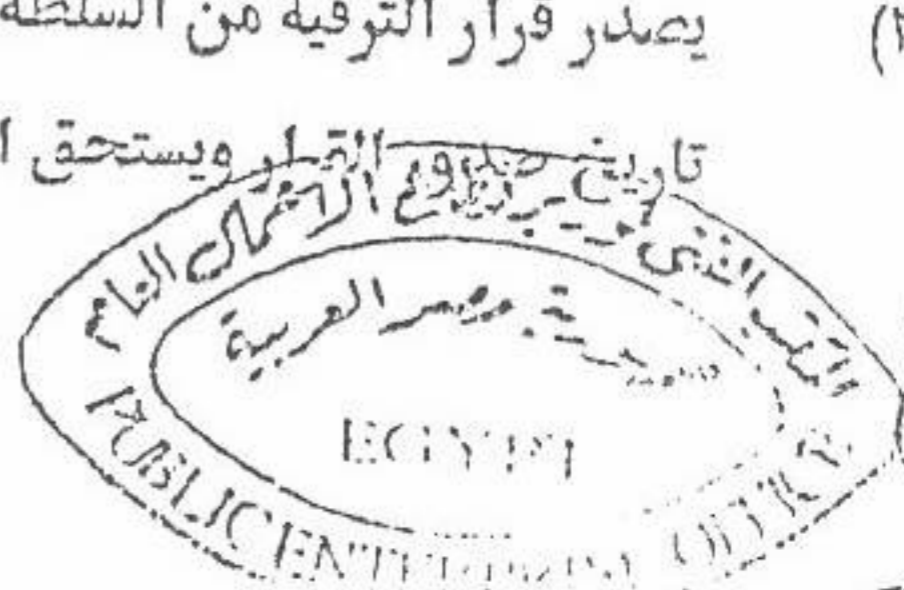 يصدر قرار الترقية من السلطة
تاريخ صدور القرار ويستحق
المكتب الفنى قطاع الأعمال العام
جمهورية مصر العربية
EGYPT
PUBLIC ENTERPRISE OFFICE